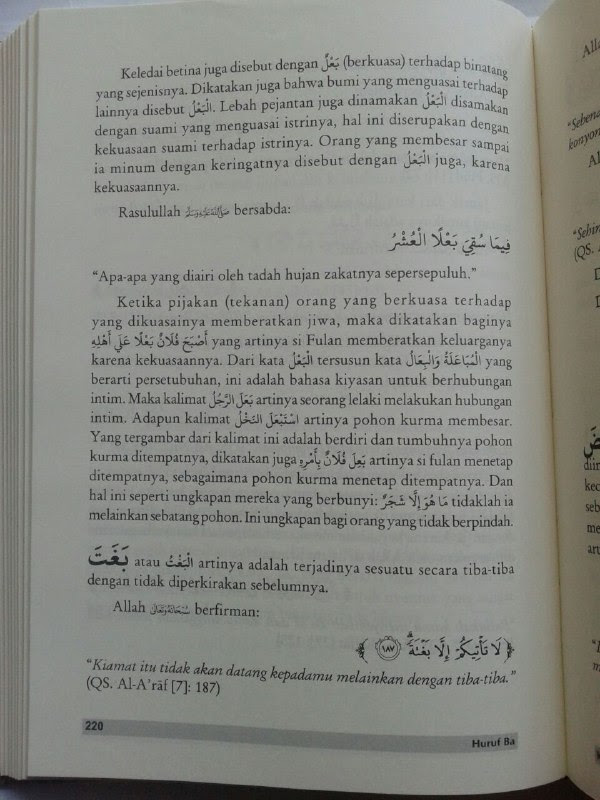 Keledai betina juga disebut dengan بَعْلٌ (berkuasa) terhadap binatang
yang sejenisnya. Dikatakan juga bahwa bumi yang menguasai terhadap
lainnya disebut الْبَعْلُ. Lebah pejantan juga dinamakan الْبَعْلُ disamakan
dengan suami yang menguasai istrinya, hal ini diserupakan dengan
kekuasaan suami terhadap istrinya. Orang yang membesar sampai
ia minum dengan keringatnya disebut dengan الْبَعْلُ juga, karena
kekuasaannya.
Rasulullah ﷺ bersabda:
فِيمَا سُقِيَ بَعْلًا الْعُشْرُ
"Apa-apa yang diairi oleh tadah hujan zakatnya sepersepuluh."
Ketika pijakan (tekanan) orang yang berkuasa terhadap
yang dikuasainya memberatkan jiwa, maka dikatakan baginya
أَصْبَحَ فُلَانٌ بَعْلًا عَلَى أَهْلِهِ yang artinya si Fulan memberatkan keluarganya
karena kekuasaannya. Dari kata الْبَعْلُ tersusun kata الْمُبَاعَلَةُ وَالْبِعَالُ yang
berarti persetubuhan, ini adalah bahasa kiyasan untuk berhubungan
intim. Maka kalimat بَعَلَ الرَّجُلُ artinya seorang lelaki melakukan hubungan
intim. Adapun kalimat اسْتَبْعَلَ النَّخْلُ artinya pohon kurma membesar.
Yang tergambar dari kalimat ini adalah berdiri dan tumbuhnya pohon
kurma ditempatnya, dikatakan juga بَعِلَ فُلَانٌ بِأَمْرِهِ artinya si fulan menetap
ditempatnya, sebagaimana pohon kurma menetap ditempatnya. Dan
hal ini seperti ungkapan mereka yang berbunyi: مَا هُوَ إِلَّا شَجَرٌ tidaklah ia
melainkan sebatang pohon. Ini ungkapan bagi orang yang tidak berpindah.
بَغَتَ atau الْبَغْتُ artinya adalah terjadinya sesuatu secara tiba-tiba
dengan tidak diperkirakan sebelumnya.
Allah سُبْحَانَهُ وَتَعَالَى berfirman:
﴿ لَا تَأْتِيكُمْ إِلَّا بَغْتَةً ۗ ١٨٧ ﴾
"Kiamat itu tidak akan datang kepadamu melainkan dengan tiba-tiba."
(QS. Al-A'rāf [7]: 187)
220
Huruf Ba
"Sebena
konyon
"Sehin
(QS.